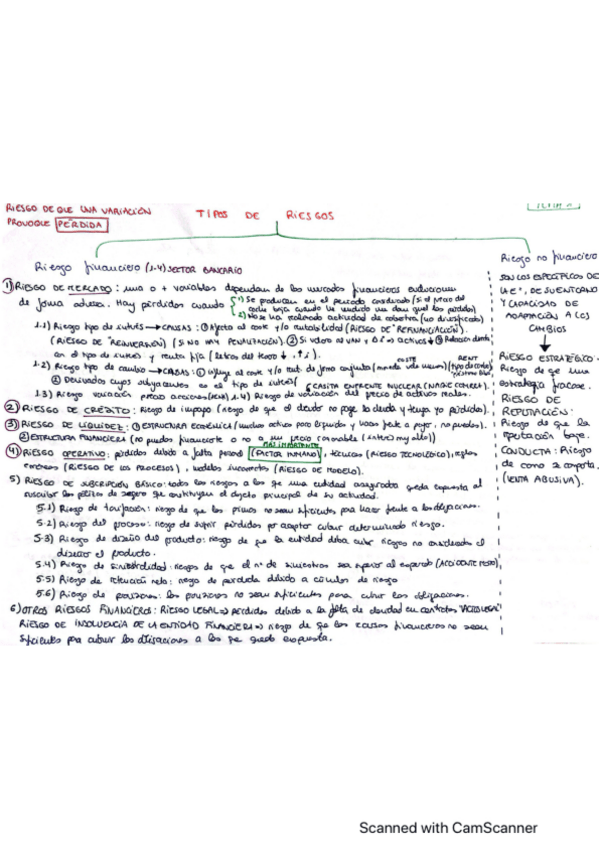 RIESGO DE QUE UNA VARIACIÓN
PROVOQUE PÉRDIDA
TIPOS DE RIESGOS
Riesgo financiero (1-4) SECTOR BANCARIO
1) RIESGO DE MERCADO: una o + variables dependan de los mercados financieros evolucionan
de forma adversa. Hay pérdidas cuando
1) Se producen en el periodo considerado (si el precio del
2) No se ha realizado actividad de cobertura (no diversificado)
1.1) Riesgo tipo de interés → CAUSAS: ① Afecta al coste y/o rentabilidad (RIESGO DE "REFINANCIACIÓN").
(RIESGO DE "REINVERSIÓN") (SI NO HAY PENALIZACIÓN) ② Si valoro al VAN y → ACTIVOS ↓ ③ Relación
en el tipo de interés y renta fija (letras del tesoro ↓, ↑ i).
1.2) Riesgo tipo de cambio → CAUSAS: ① Influye al coste y/o rent. de forma conjunta
COSTE
RENT
② Derivados cuyos subyacentes es el tipo de interés
1.3) Riesgo variación precio acciones 1.4) Riesgo de variación del precio de activos reales.
2) RIESGO DE CRÉDITO: Riesgo de impago (riesgo de que el deudor no pague la deuda y tenga yo pérdidas).
3) RIESGO DE LIQUIDEZ: ① ESTRUCTURA ECONÓMICA (muchos activos poco líquidos y hacer frente a pagos, no puedes).
② ESTRUCTURA FINANCIERA (no puedes financiarte o no a un precio razonable (interés muy alto))
MÁS IMPORTANTE
4) RIESGO OPERATIVO: pérdidas debido a fallos personal (FACTOR HUMANO), técnicos (RIESGO TECNOLÓGICO), reglas
erróneas (RIESGO DE LOS PROCESOS), modelos incorrectos (RIESGO DE MODELO).
5) RIESGO DE SUSCRIPCIÓN BÁSICO: todos los riesgos a los que una entidad aseguradora queda expuesta al
suscribir las pólizas de seguro que constituyen el objeto principal de su actividad.
5.1) Riesgo de tarificación: riesgo de que las primas no sean suficientes para hacer frente a las obligaciones.
5.2) Riesgo del proceso: riesgo de sufrir pérdidas por aceptar cubrir determinado riesgo.
5.3) Riesgo de diseño del producto: riesgo de que la entidad deba cubrir riesgos no considerados al
diseñar el producto.
5.4) Riesgo de siniestralidad: riesgo de que el nº de siniestros sea superior al esperado
5.5) Riesgo de retención neta: riesgo de pérdida debido a cúmulos de riesgo
5.6) Riesgo de provisiones: las provisiones no sean suficientes para cubrir las obligaciones.
6) OTROS RIESGOS FINANCIEROS: RIESGO LEGAL ⇒ pérdidas debido a la falta de claridad en contratos
RIESGO DE INSOLVENCIA DE LA ENTIDAD FINANCIERA ⇒ riesgo de que los recursos financieros no sean
suficientes para cubrir las obligaciones a las que queda expuesta.
Riesgo no financiero
SON LOS ESPECÍFICOS DE
LA Eª, DE SU ENTORNO
Y CAPACIDAD DE
ADAPTACIÓN A LOS
CAMBIOS
RIESGO ESTRATÉGICO:
Riesgo de que una
estrategia fracase.
RIESGO DE
REPUTACIÓN:
Riesgo de que la
reputación baje.
CONDUCTA: Riesgo
de como se comporta.
(VENTA ABUSIVA).
Scanned with CamScanner